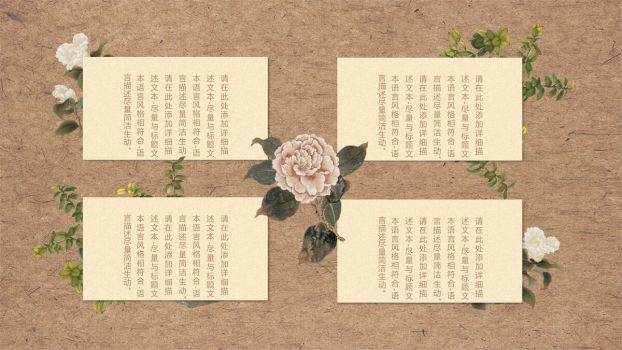 请在此处添加详细描
述文本,尽量与标题文
本语言风格相符合,语
言描述尽量简洁生动。
请在此处添加详细描
述文本,尽量与标题文
本语言风格相符合,语
言描述尽量简洁生动。
请在此处添加详细描
述文本,尽量与标题文
本语言风格相符合,语
言描述尽量简洁生动。
请在此处添加详细描
述文本,尽量与标题文
本语言风格相符合,语
言描述尽量简洁生动。
请在此处添加详细描
述文本,尽量与标题文
本语言风格相符合,语
言描述尽量简洁生动。
请在此处添加详细描
述文本,尽量与标题文
本语言风格相符合,语
言描述尽量简洁生动。
请在此处添加详细描
述文本,尽量与标题文
本语言风格相符合,语
言描述尽量简洁生动。
请在此处添加详细描
述文本,尽量与标题文
本语言风格相符合,语
言描述尽量简洁生动。